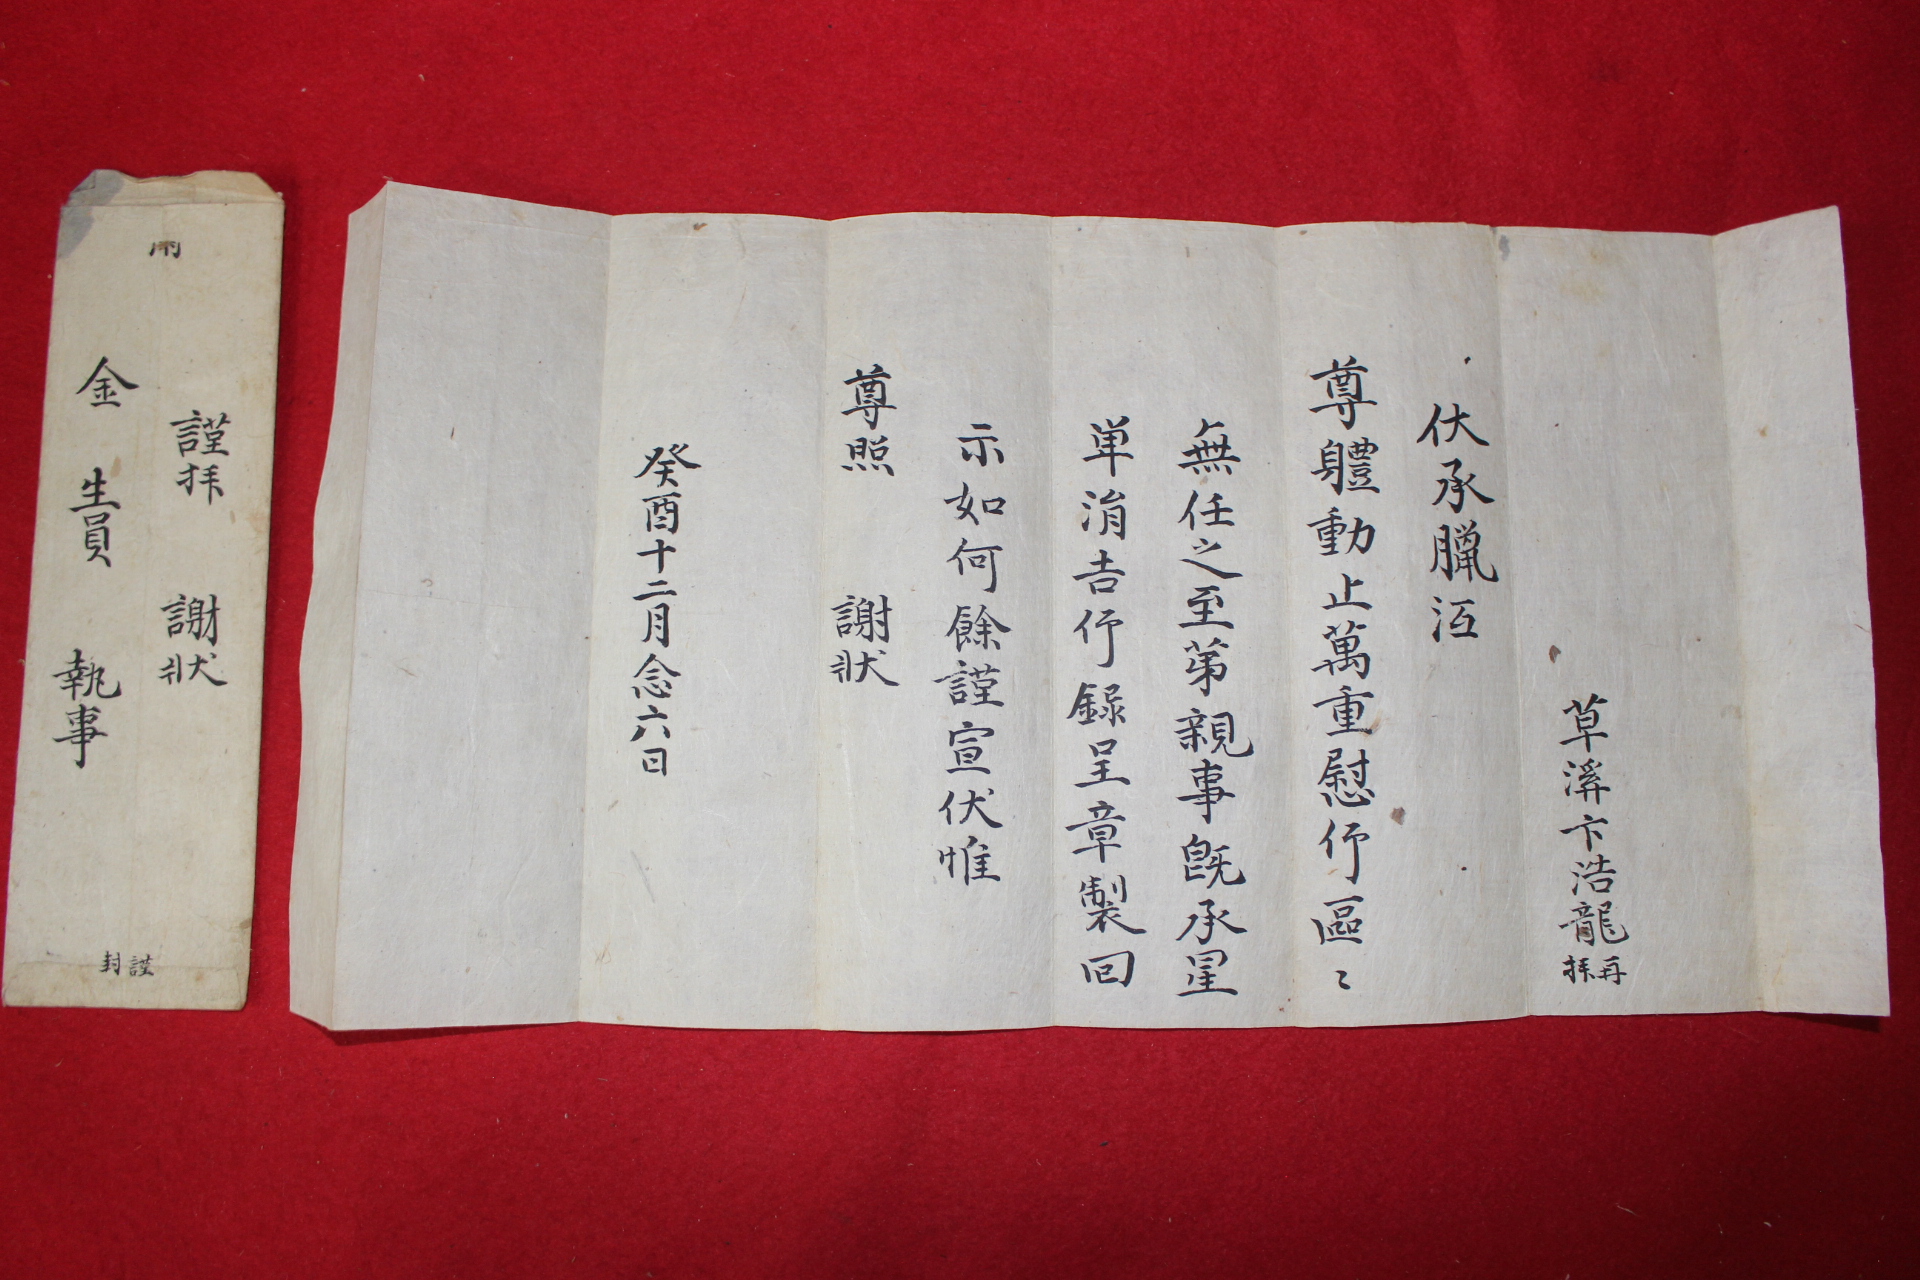 草溪卞浩龍再拜
伏承臘沍
尊體動止萬重慰仰區〻
無任之至第親事旣承星
单涓吉仰錄呈章製回
示如何餘謹宣伏惟
尊照 謝狀
癸酉十二月念六日
謹拜 謝狀
金生員 執事
謹封